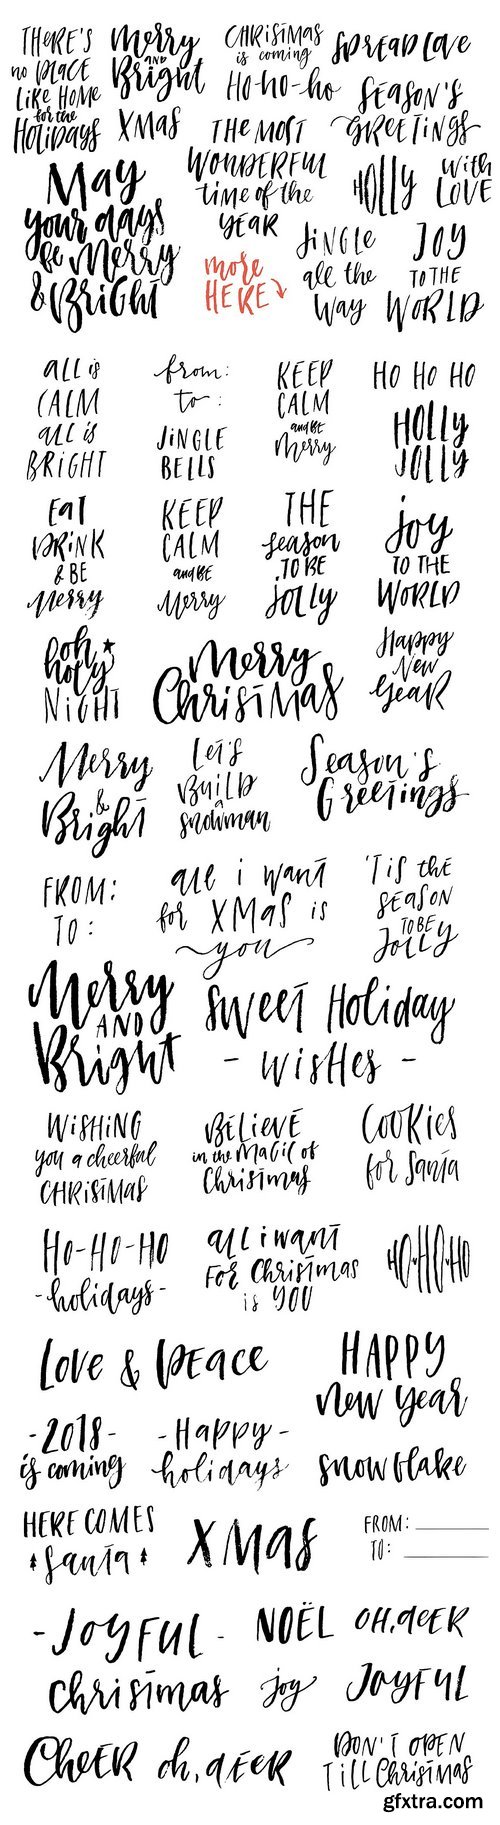 THERE'S
no PLACE
LIKE HOME
for the
HOLIDAYS
Merry
AND
Bright
XMAS
CHRISTMAS
is coming
HO-ho-ho
SPREAD LOVE
SEASON'S
GREETINGS
THE MOST
WONDERFUL
time of the
YEAR
HOLLY
with
LOVE
May
your days
be Merry
& Bright
more
HERE
JiNGLE
all the
Way
JOY
TO THE
WORLD
ALL is
CALM
all is
BRIGHT
from:
to:
JiNGLE
BELLS
KEEP
CALM
and BE
Merry
HO HO HO
HOLLY
JOLLY
Eat
DRiNK
& BE
Merry
KEEP
CALM
and BE
Merry
THE
season
TO BE
JOLLY
joy
TO THE
WORLD
ooh
holy
NiGHT
Merry
Christmas
Happy
New
Year
Merry
&
Bright
Let's
BuiLD
a
snowman
Season's
Greetings
FROM:
TO:
all i want
for XMas is
you
'Tis the
SEASON
TO BE
JOLLY
Merry
AND
Bright
Sweet Holiday
- wisHes -
WiSHiNG
you a cheerful
CHRiSTMAS
BELiEVE
in the MaGiC of
Christmas
COOKiES
for Santa
HO-HO-HO
-holidays-
all i want
FOR Christmas
is YOU
HO-HO-HO
LOVE & PEACE
HAPPY
new year
-2018-
is coming
-Happy-
holidays
snowflake
HERE COMES
Santa
XMas
FROM:
TO:
- JOYFUL -
NOËL
OH, dEER
Christmas
joy
JOYFUL
CHEER
oh, dEER
DON'T OPEN
TiLL Christmas
gfxtra.com